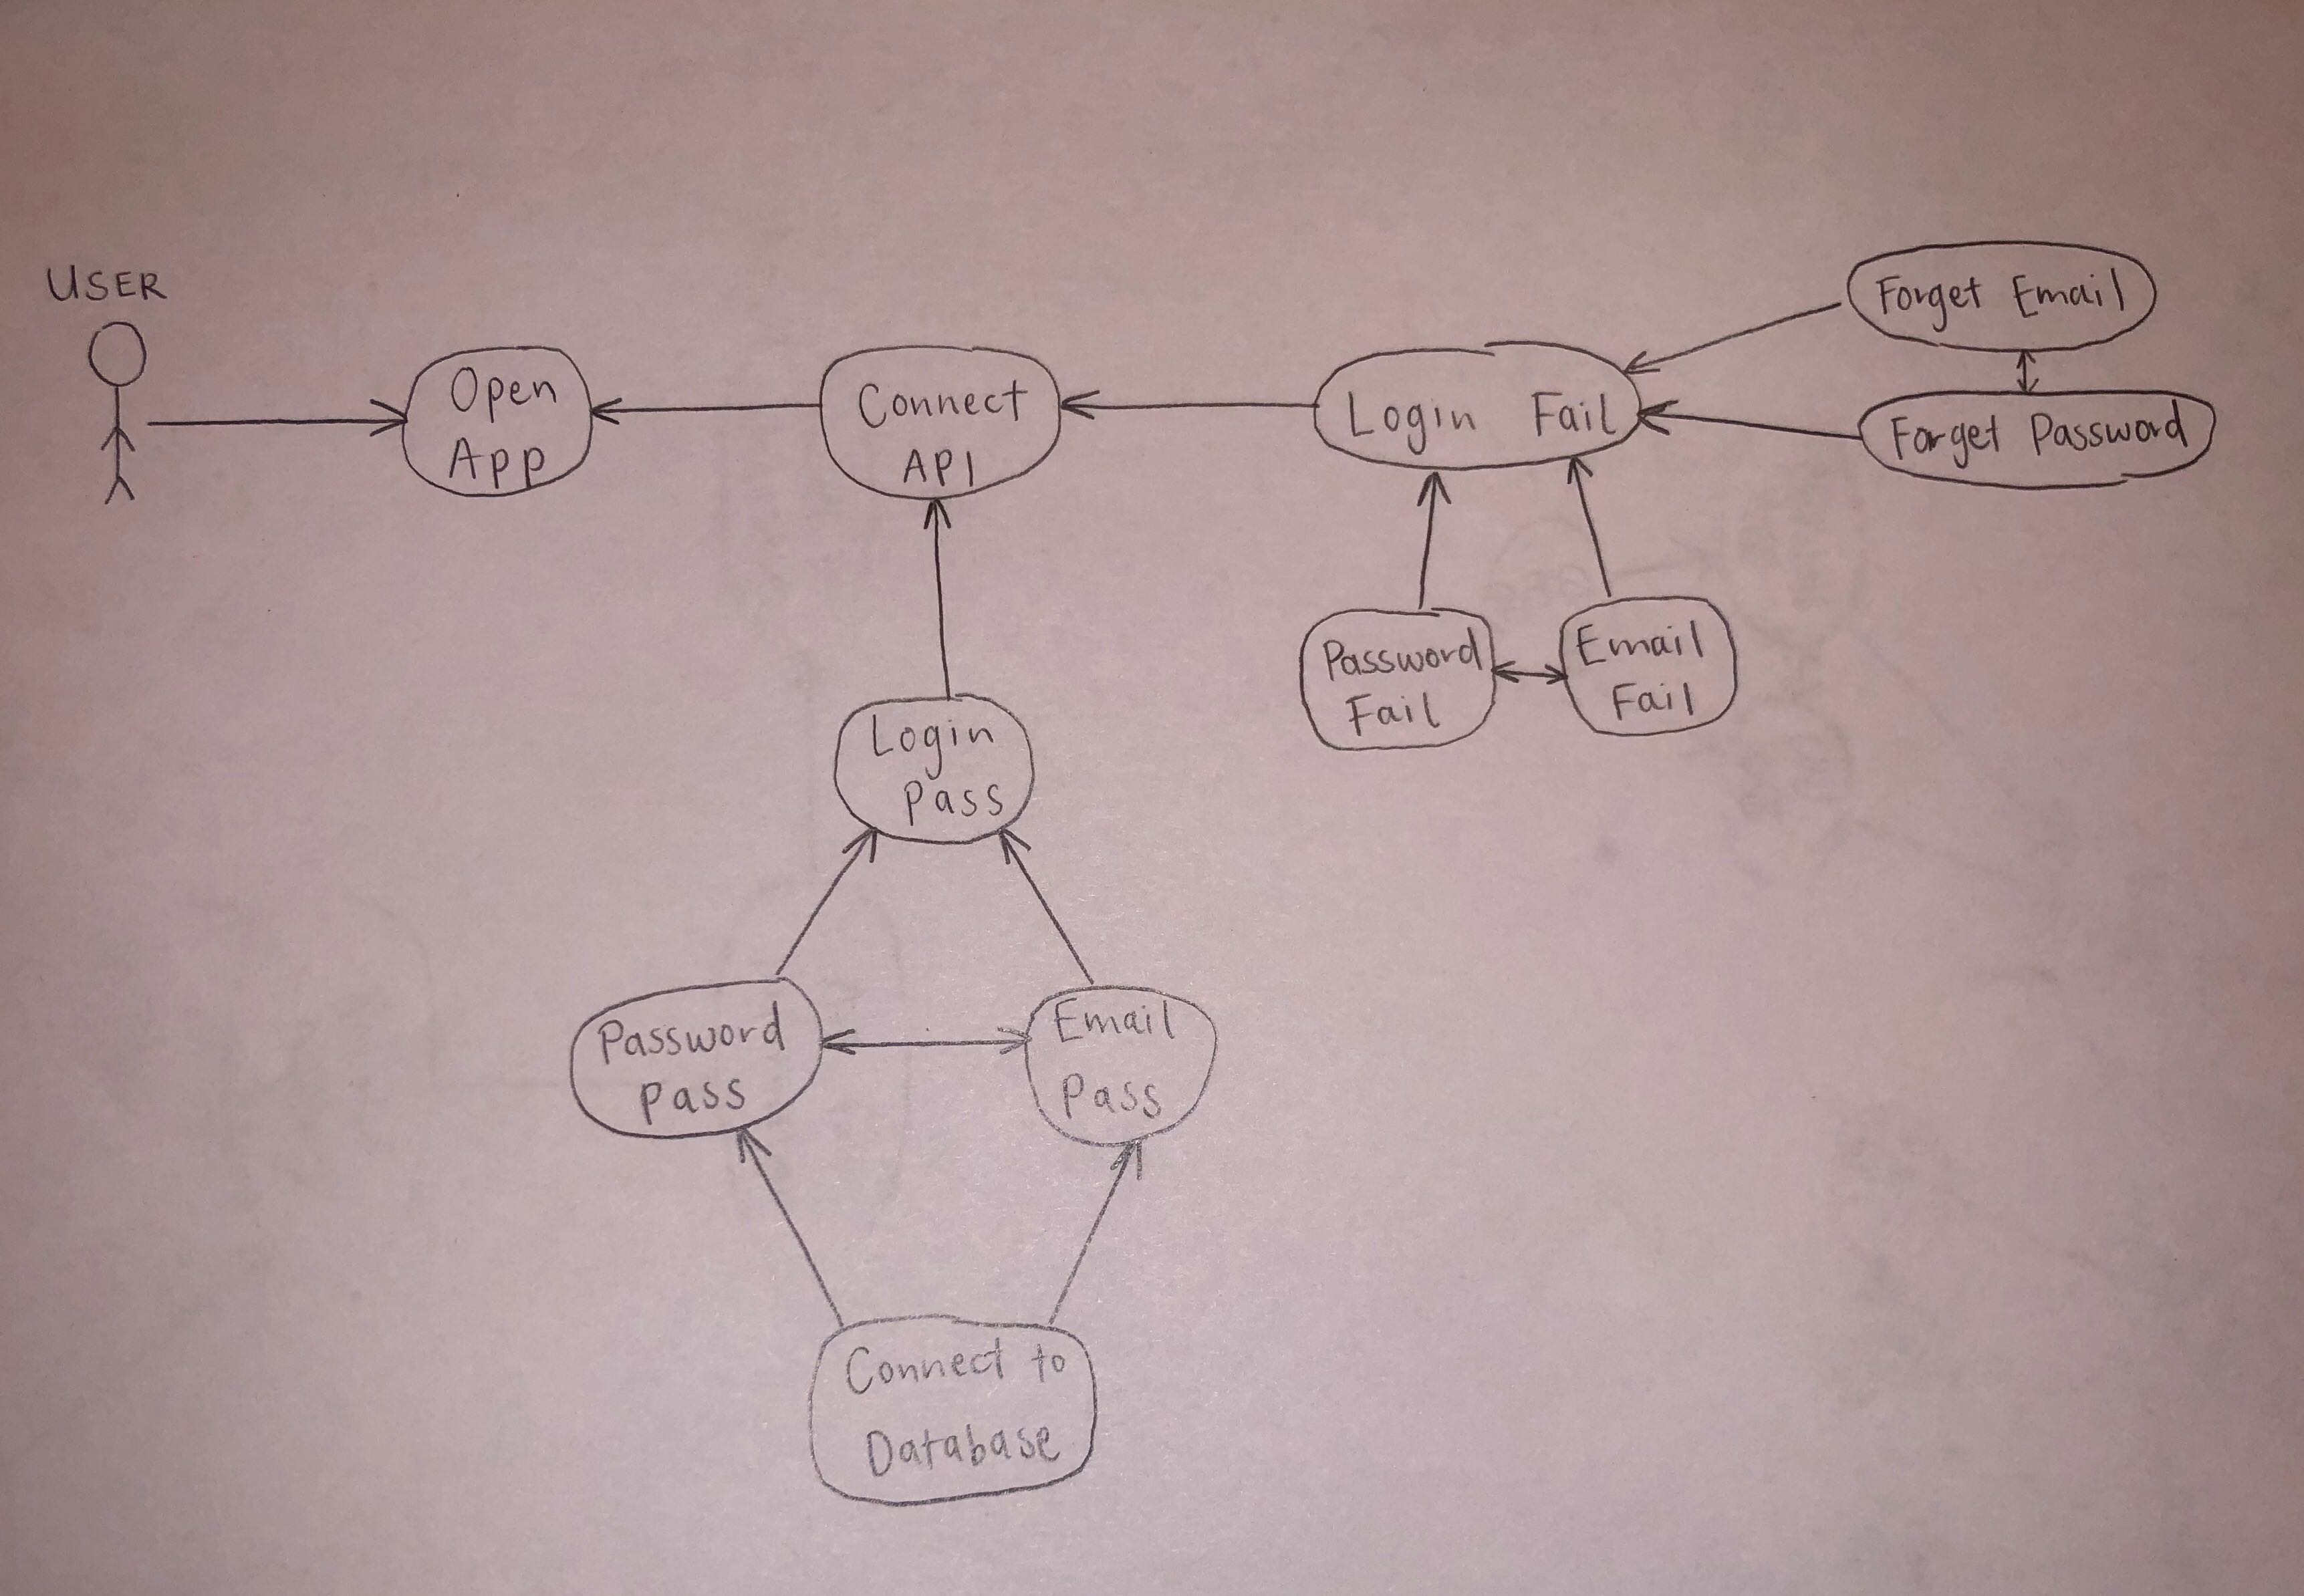 USER
Open
App
Connect
API
Login Fail
Forget Email
Forget Password
Password
Fail
Email
Fail
Login
Pass
Password
Pass
Email
Pass
Connect to
Database